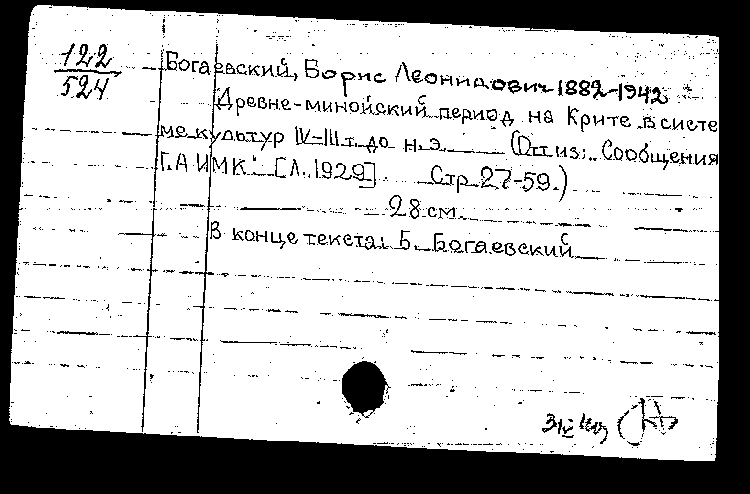 122
524
Богаевский, Борис Леонидович 1882-1942
Древне-минойский период на Крите в систе
ме культур IV-III т. до н.э. (От. из: Сообщения
Г.А ИМК. [Л. 1929] Стр 27-59.)
28 см.
В конце текста: Б. Богаевский